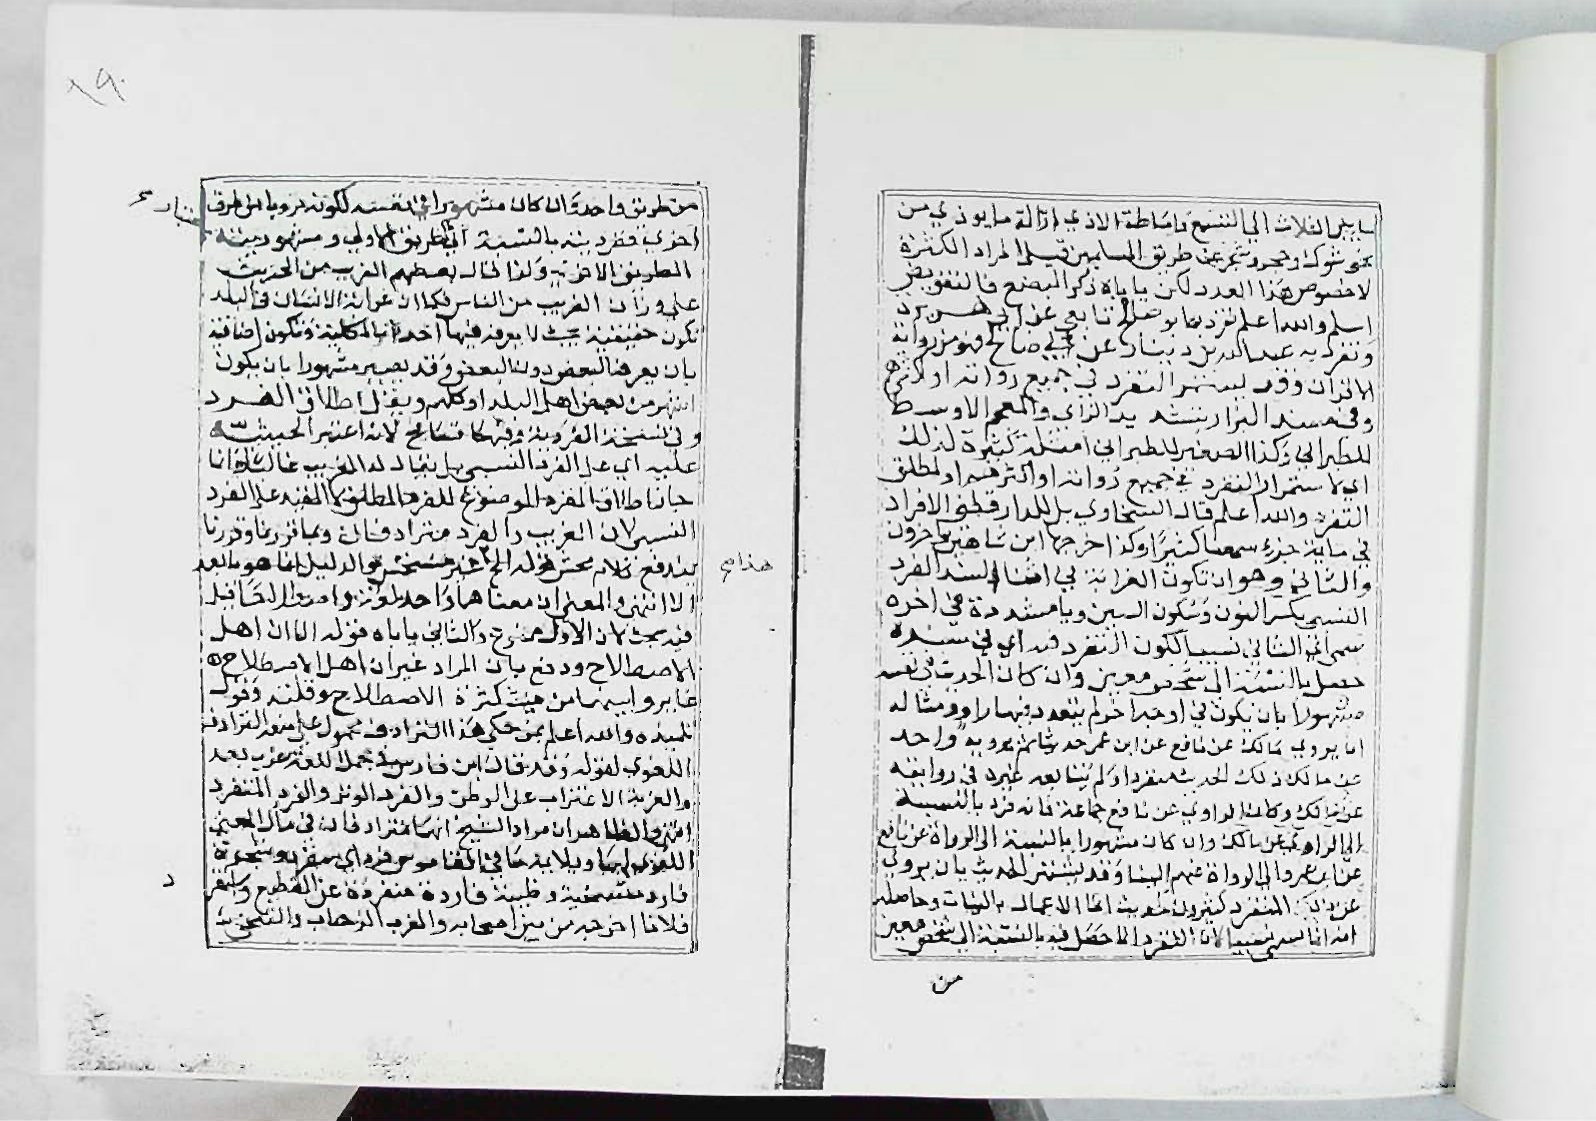 ما بين الثلاث الى التسع واماطة الاذي ازالة ما يوذي من
نحو شوك وحجر وشجر عن طريق المسلمين قيل المراد الكثرة
لا خصوص هذا العدد لكن ياباه ذكر البضع فالتفويض
اسلم والله اعلم تفرد بها بو صالح تابعي عن ابي هريرة
وتفرد به عبد الله بن دينار عن ابي صالح فهو من رواية
الاقران وقد يستمر التفرد في جميع رواته او اكثرهم
وفي مسند البزار بتشديد الزاي والمعجم الاوسط
للطبراني وكذا الصغير للطبراني امثلة كثيرة لذلك
اي لاستمرار التفرد في جميع رواته او اكثرهم او لمطلق
التفرد والله اعلم قال السخاوي بل للدارقطني الافراد
في ماية جزء سمعنا كثيرا وكذا خرجها ابن شاهين واخرون
والثاني وهو ان تكون الغرابة في اثناء السند الفرد
النسبي بكسر النون وسكون السين ويا مشددة في اخره
سمي اي الثاني نسبيا لكون التفرد فيه اي في سنده
حصل بالنسبة الى شخص معين وان كان الحديث في نفسه
مشهورا بان يكون في اوجه اخر لم يتفرد فيها راو ومثاله
ما يروي مالك عن نافع عن ابن عمر حديثا ثم يرويه واحد
عن مالك ذلك الحديث منفردا ولم يتابعه غيره في روايته
عن مالك وكان الراوي عن نافع جماعة فانه فرد بالنسبة
الى الراوي عن مالك وان كان مشهورا بالنسبة الى الرواة عن نافع
عن ابن عمر والى الرواة عنهم الينا وقد يشتهر الحديث بان يروي
عن ذلك المنفرد كثيرون كحديث انما الاعمال بالنيات وحاصله
انه انما سمي نسبيا لان التفرد انما حصل فيه بالنسبة الى شخص معين
من
٩٠
من طريق واحد وان كان مشهورا في نفسه لكونه مرويا من طرق
اخري ففرديته بالنسبة الى طريق الاولي ومشهوريته
الطريق الاخري ولذا قال بعضهم الغريب من الحديث
علي وزان الغريب من الناس فكما ان غرابة الانسان في البلد
تكون حقيقية بحيث لا يعرفه فيها احد بالكلية وتكون اضافية
بان يعرفه البعض دون البعض وقد يصير مشهورا بان يكون
اشهر من بعض اهل البلد او كلهم ويقل اطلاق الفرد
وفي نسخة الفردية وفيها تسامح لانه اعتبر الحيثية
عليه اي على الفرد النسبي بل يقال له الغريب غالبا
اطلاق الفرد الموضوع للفرد المطلق على الفرد
النسبي لان الغريب والفرد مترادفان وبما قررنا
يندفع كلام محش قوله
الا انتهى والمعنى ان معناهما واحد لغة واصطلاحا قيل
فيه بحث لان الاول ممنوع والثاني ياباه قوله الا ان اهل
الاصطلاح ودفع بان المراد غير ان اهل الاصطلاح
غايروا بينهما من حيث كثرة الاصطلاح وقلته وقول
تلميذه والله اعلم بمن حكي هذا الترادف محمول على الترادف
اللغوي لقوله وقد قال ابن فارس في مجمل اللغة غرب بعد
والغربة الاغتراب عن الوطن والفرد الوتر والفرد المنفرد
انتهى والظاهر ان مراد الشيخ انهما مترادفان في مآل المعنى
اللغوي ويلايمه ما في القاموس فرد اي متفرد وشجرة
فارد متنحية وظبية فاردة منفردة عن القطيع
فلانا اخرجه من بين اصحابه والغرب الذهاب والتنحي